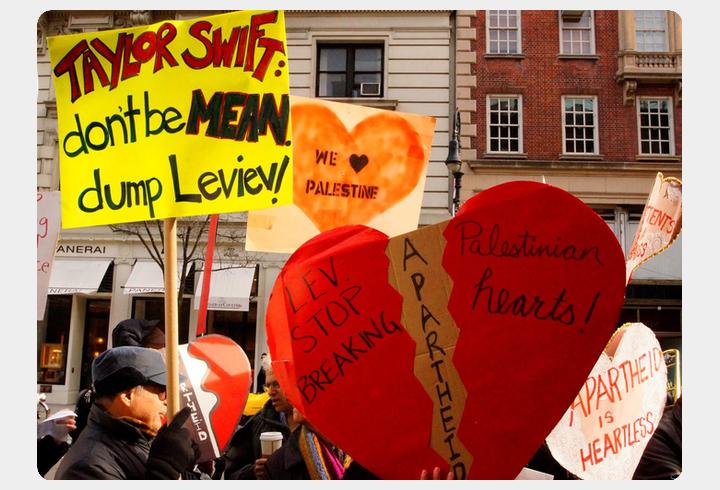 TAYLOR SWIFT:
don't be MEAN.
dump Leviev!
WE ♥
PALESTINE
LEV.
STOP
BREAKING
APARTHEID
Palestinian
hearts!
APARTHEID
IS
HEARTLESS
RTHEID
PANERAI